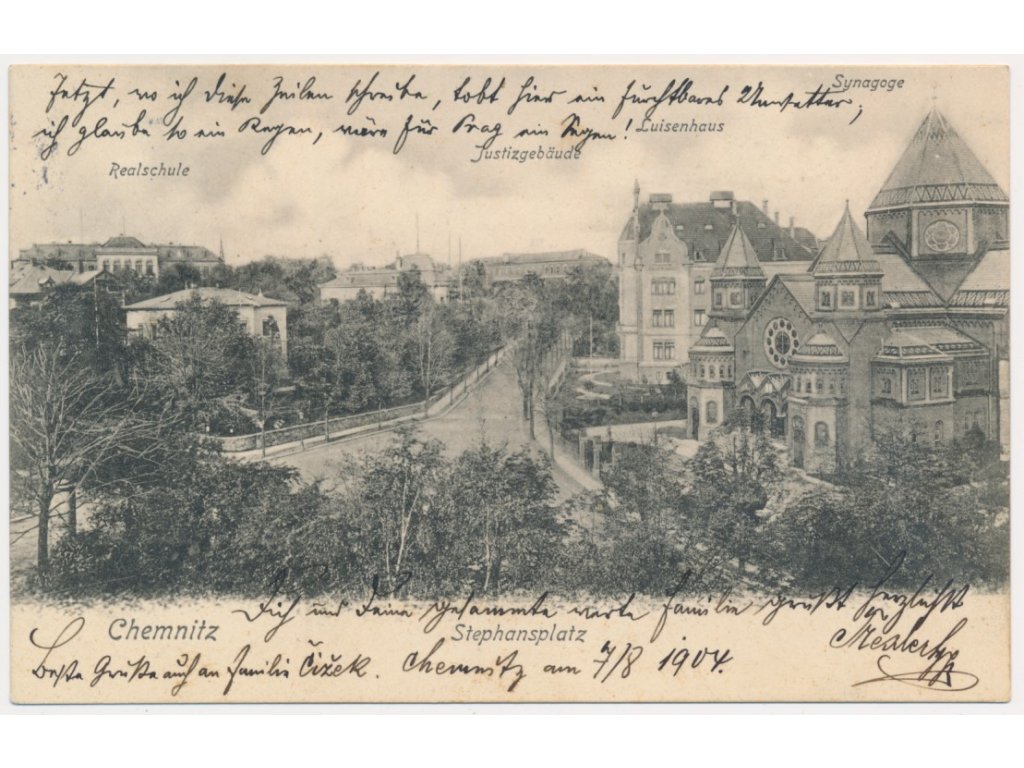 Jetzt, wo ich diese Zeilen schreibe, tobt hier ein furchtbares Unwetter;
ich glaube so ein Regen, wäre für Prag ein Segen!
Synagoge
Luisenhaus
Justizgebäude
Realschule
Dich und Deine gesammte werte Familie grüßt herzlichst
Chemnitz
Stephansplatz
Beste Grüße auch an Familie Čižek. Chemnitz am 7/8 1904.